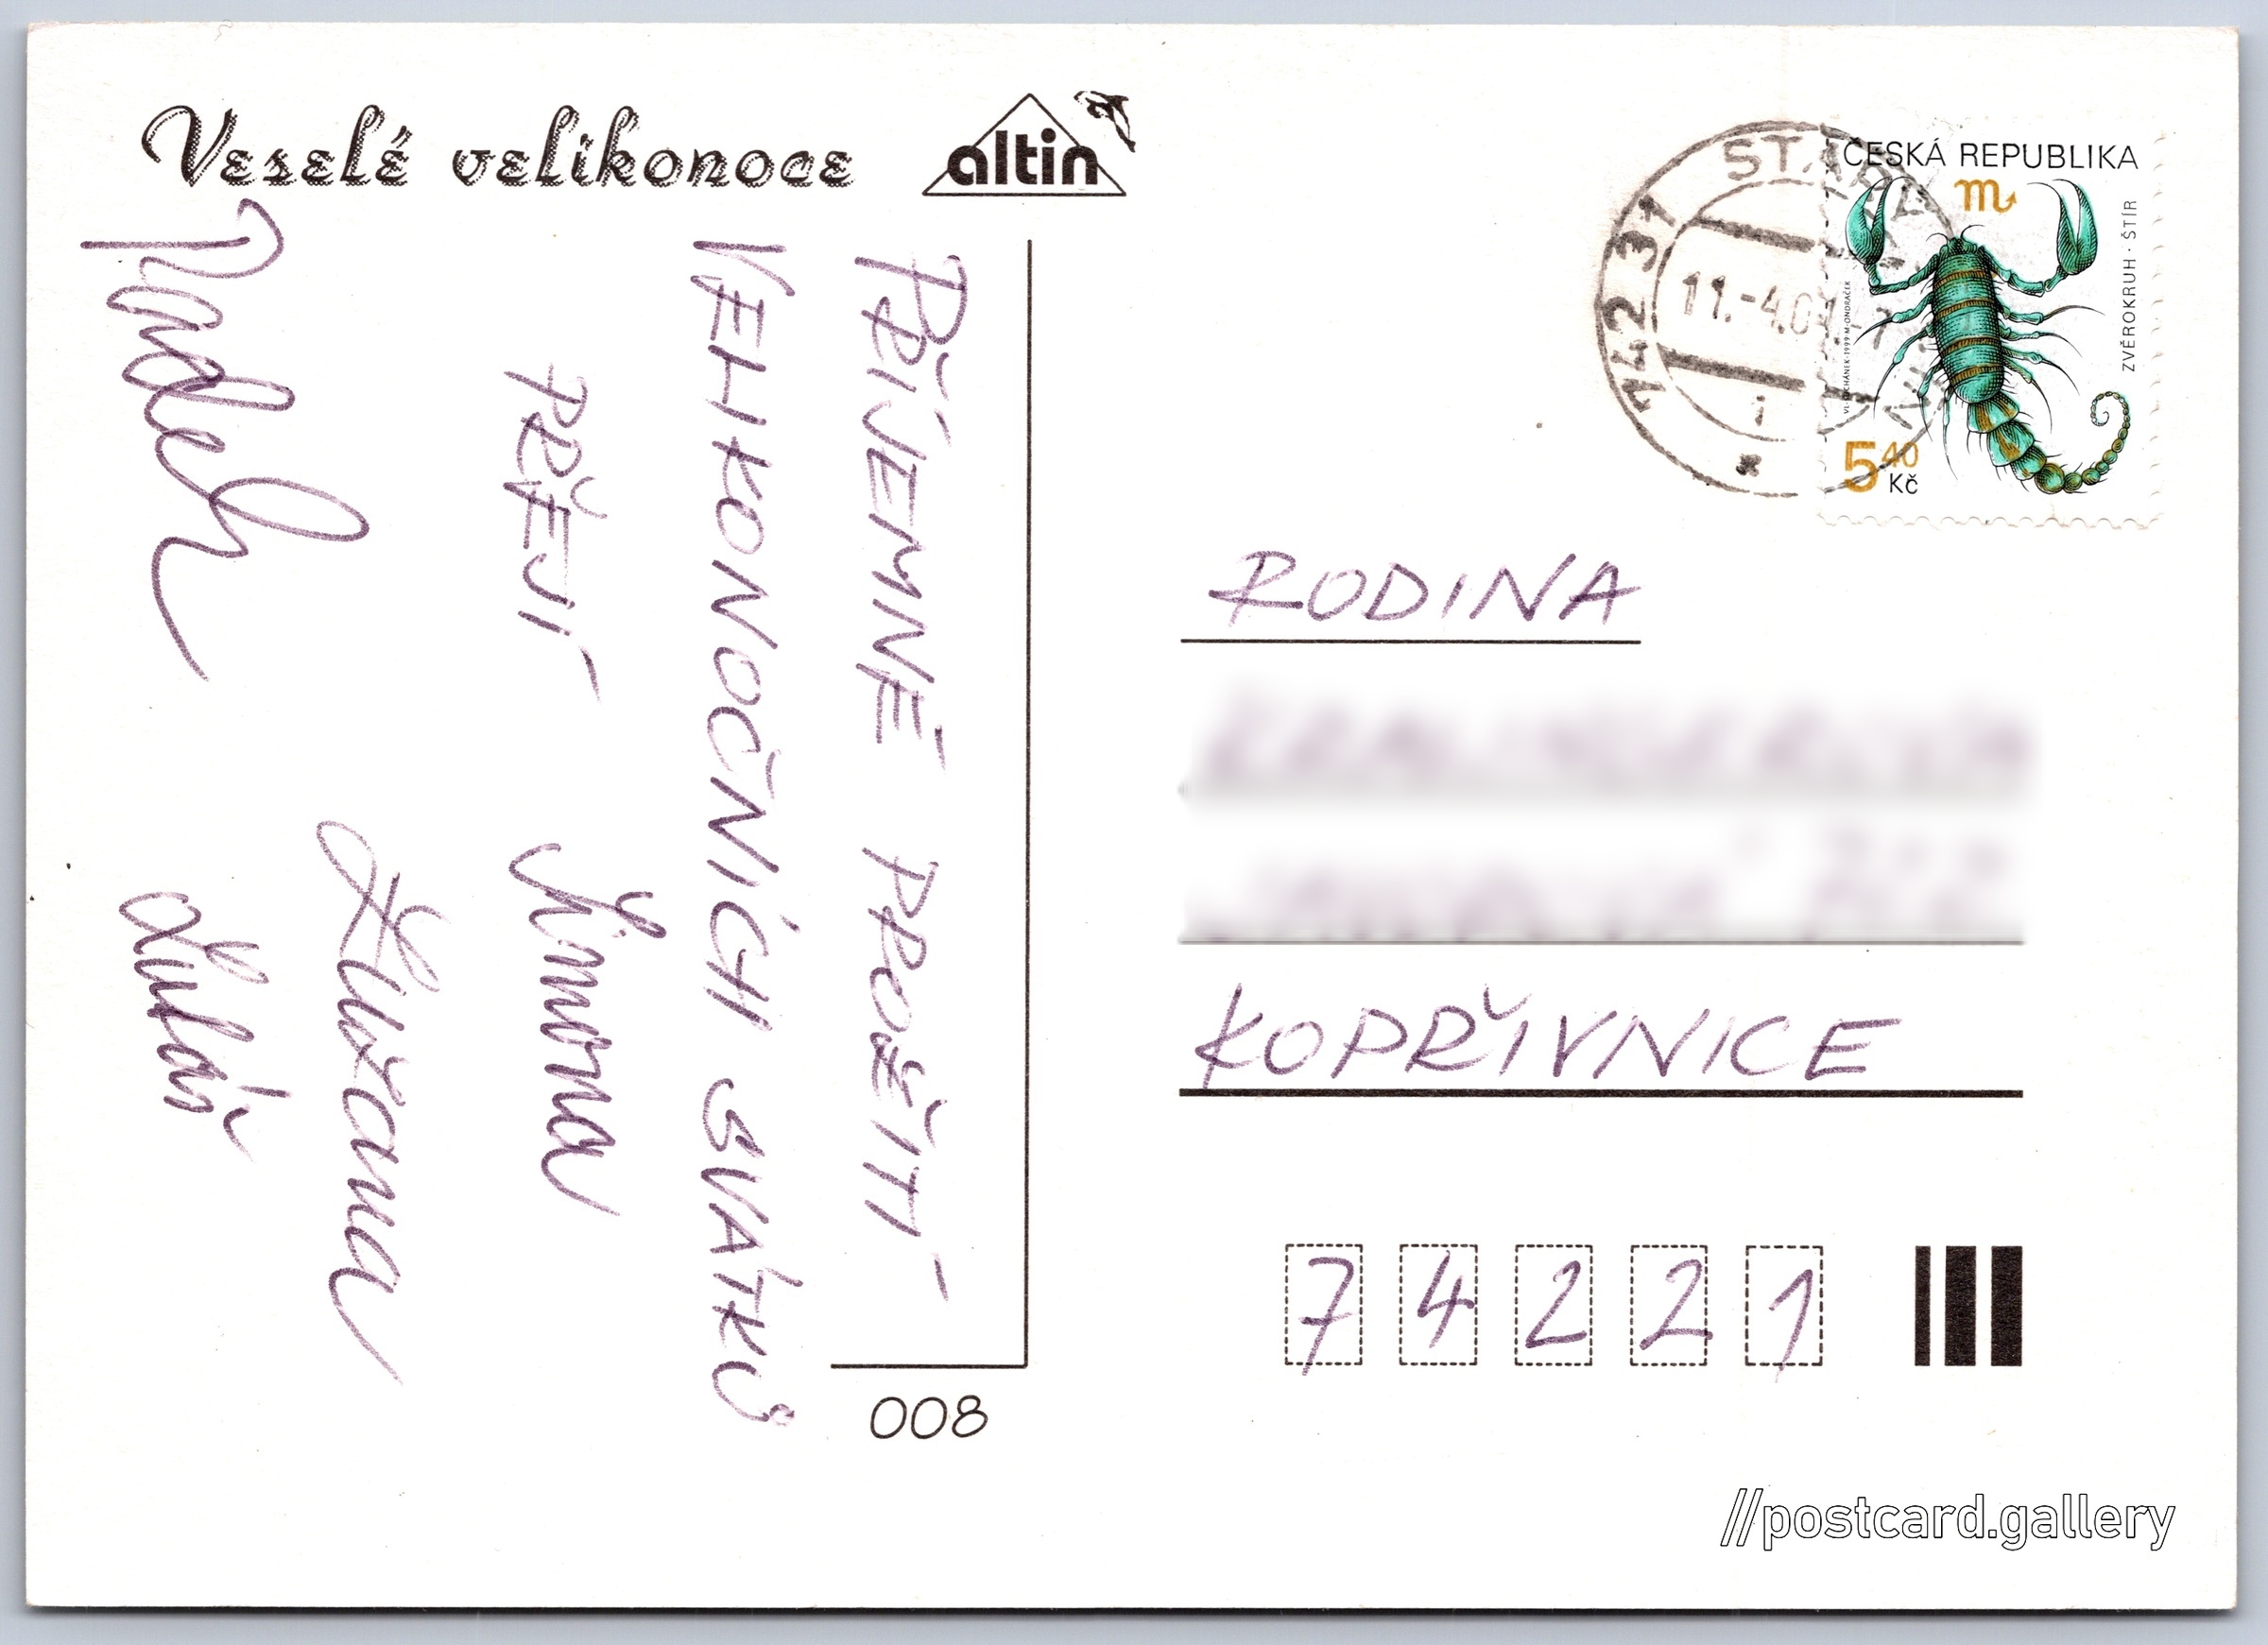 Veselé velikonoce
altin
PŘÍJEMNÉ PROŽITÍ
VELIKONOČNÍCH SVÁTKŮ
PŘEJÍ
Simona
Zuzana
Radek
Lukáš
008
742 31
STARÁ
11.-4.01
ČESKÁ REPUBLIKA
ZVĚROKRUH · ŠTÍR
5 40
Kč
RODINA
KOPŘIVNICE
7 4 2 2 1
//postcard.gallery